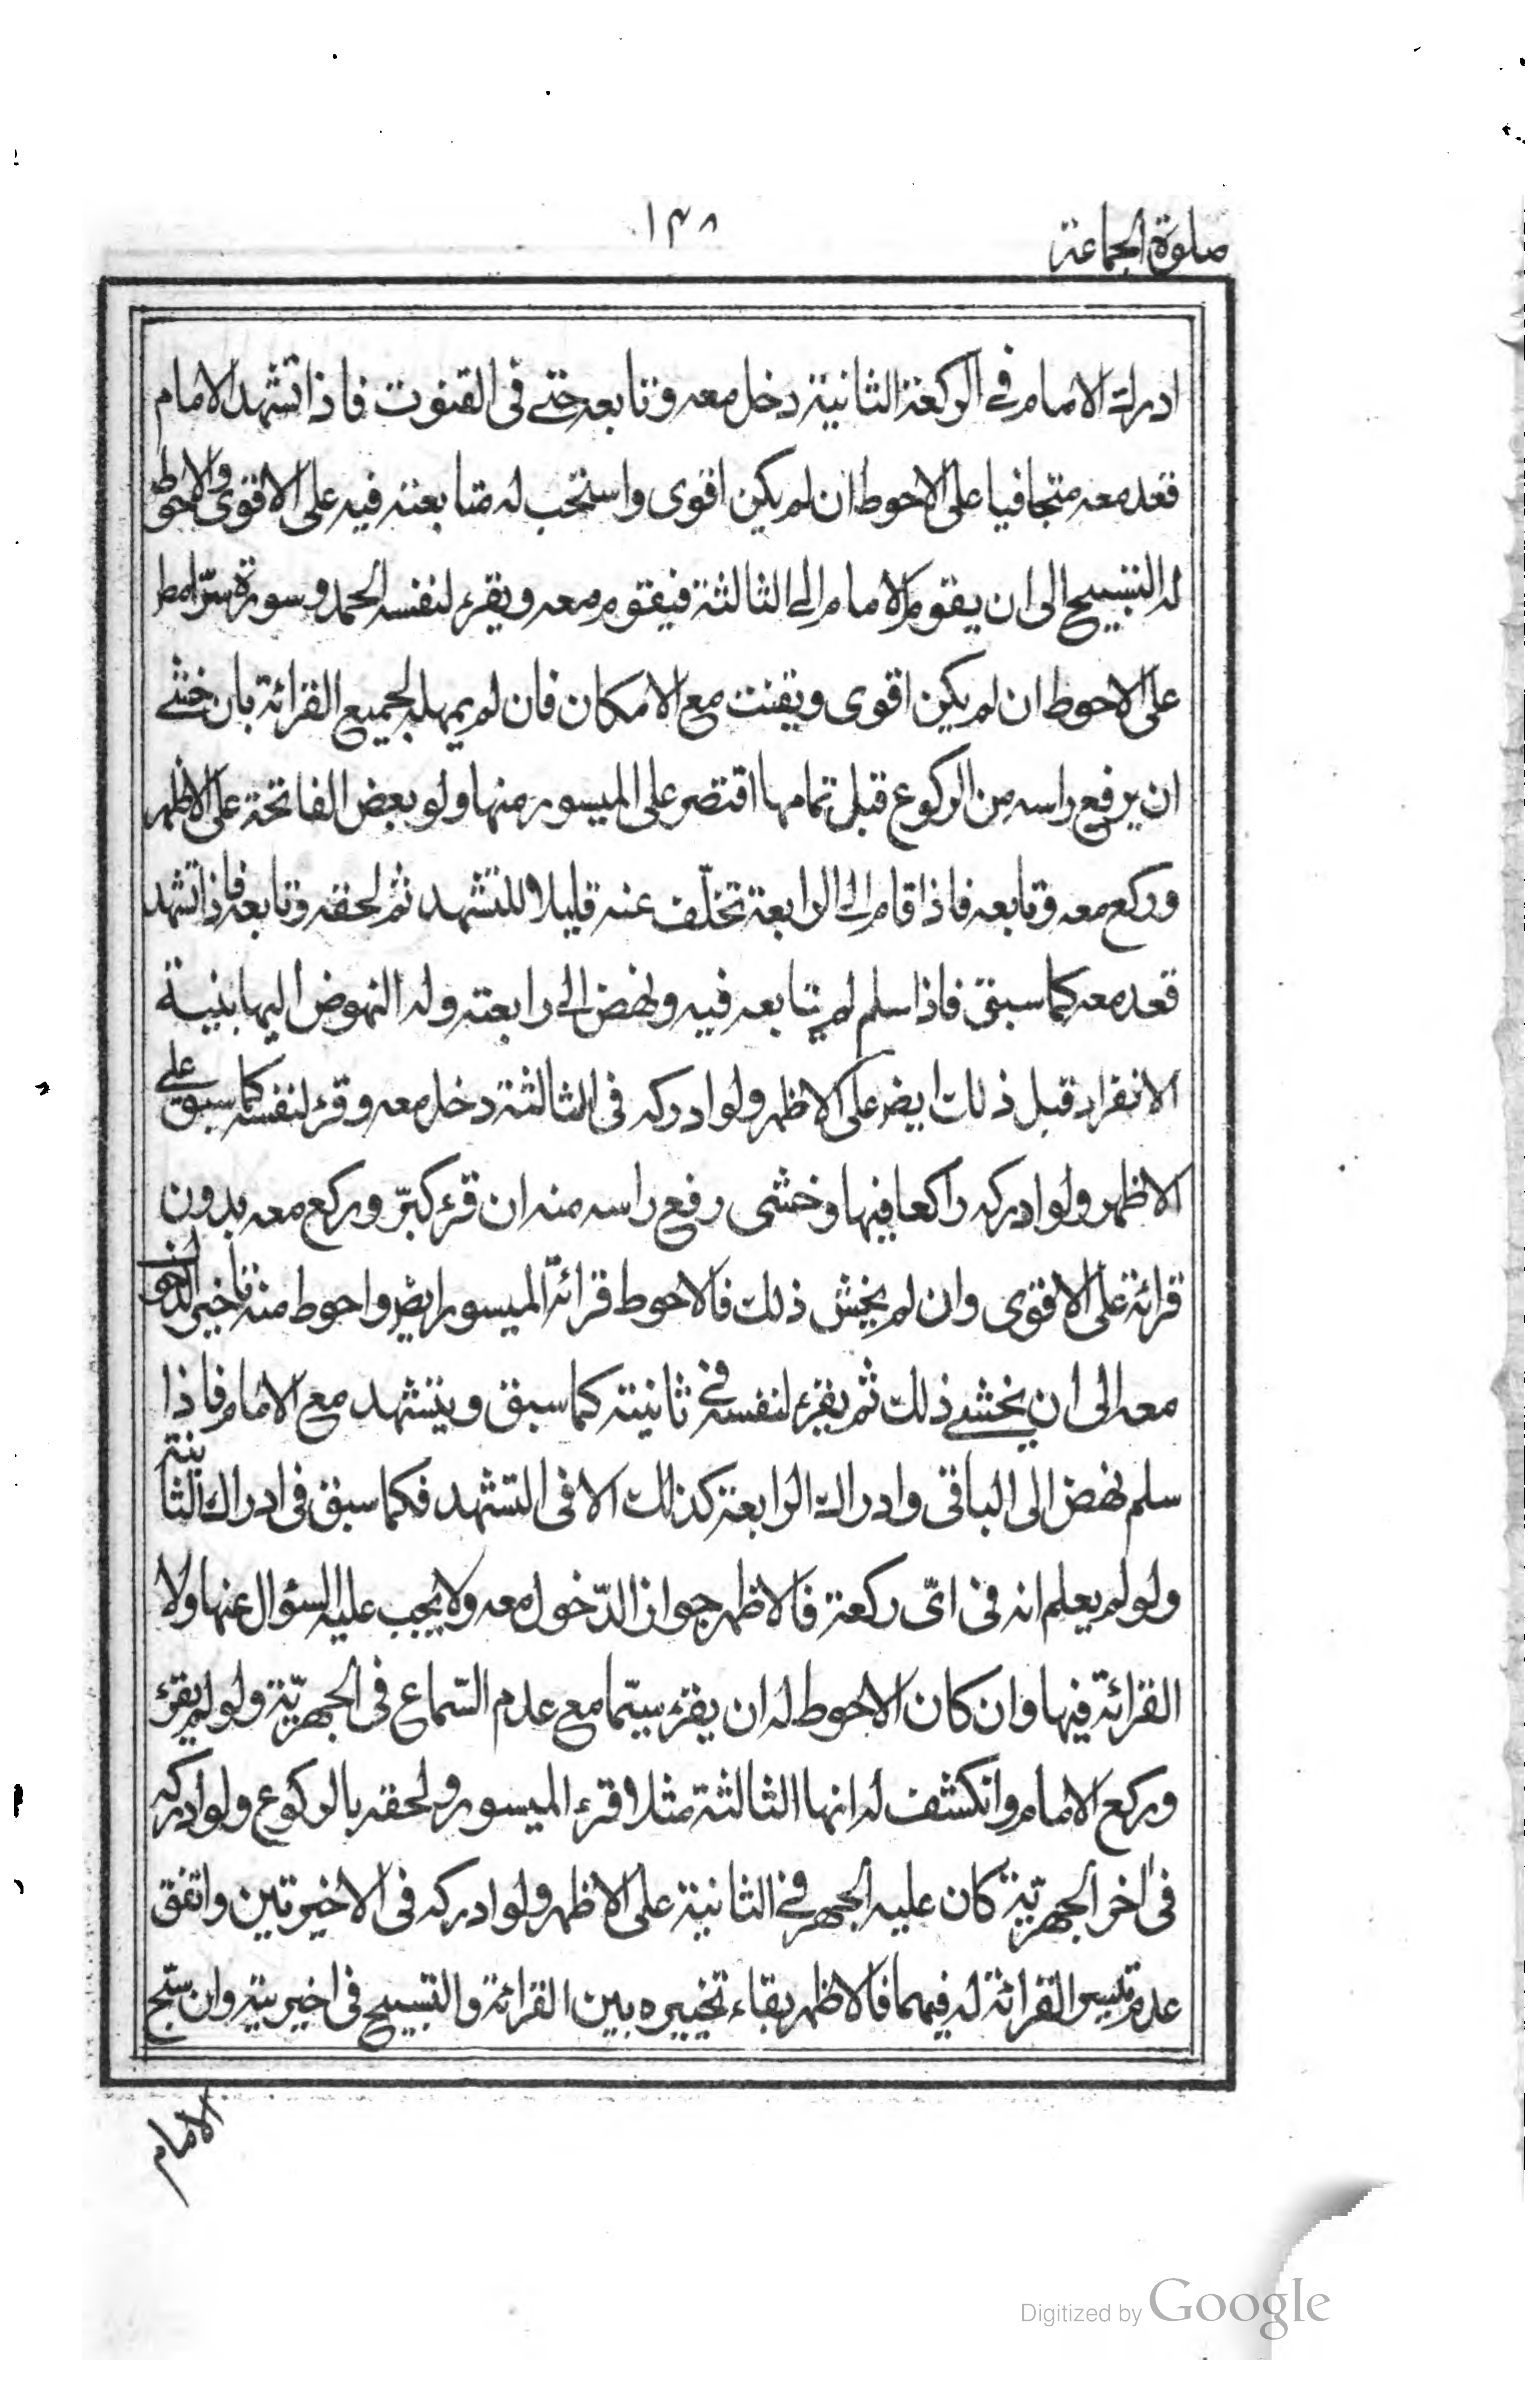 صلوة الجماعة
١٣٨
ادراك الامام فى الركعة الثانية دخل معه وتابعه حتى فى القنوت فاذا تشهد الامام
قعد معه متجافيا على الاحوط ان لم يكن اقوى واستحب له متابعته فيه على الاقوى والاحوط
له التسبيح الى ان يقوم الامام الى الثالثة فيقوم معه ويقرء لنفسه الحمد وسورة سرّا مط
على الاحوط ان لم يكن اقوى ويقنت مع الامكان فان لم يمهله لجميع القرائة بان خشى
ان يرفع راسه من الركوع قبل تمامها اقتصر على الميسور منها ولو بعض الفاتحة على الاظهر
وركع معه وتابعه فاذا قام الى الرابعة تخلّف عنه قليلا للتشهد ثم لحقه وتابعه فاذا تشهد
قعد معه كما سبق فاذا سلم لم يتابعه فيه ونهض الى رابعته وله النهوض اليها بنية
الانفراد قبل ذلك ايض على الاظهر ولو ادركه فى الثالثة دخل معه وقرء لنفسه كما سبق على
الاظهر ولو ادركه راكعا فيها وخشى رفع راسه منه ان قرء كبّر وركع معه بدون
قرائة على الاقوى وان لم يخش ذلك فالاحوط قرائة الميسور ايض واحوط منه تاخير الدخول
معه الى ان يخشى ذلك ثم يقرء لنفسه فى ثانيته كما سبق ويتشهد مع الامام فاذا
سلم نهض الى الباقى وادراك الرابعة كذلك الا فى التشهد فكما سبق فى ادراك الثانية
ولو لم يعلم انه فى اىّ ركعة فالاظهر جواز الدّخول معه ولا يجب عليه السؤال عنها ولا
القرائة فيها وان كان الاحوط له ان يقرء سيّما مع عدم السّماع فى الجهريّة ولو لم يقرء
وركع الامام وانكشف له انها الثالثة مثلا قرء الميسور ولحقه بالركوع ولو ادركه
فى اخر الجهريّة كان عليه الجهر فى الثانية على الاظهر ولو ادركه فى الاخيرتين واتفق
عدم تيسر القرائة له فيهما فالاظهر بقاء تخييره بين القرائة والتسبيح فى اخيرتيه وان سبّح
الامام
Digitized by Google